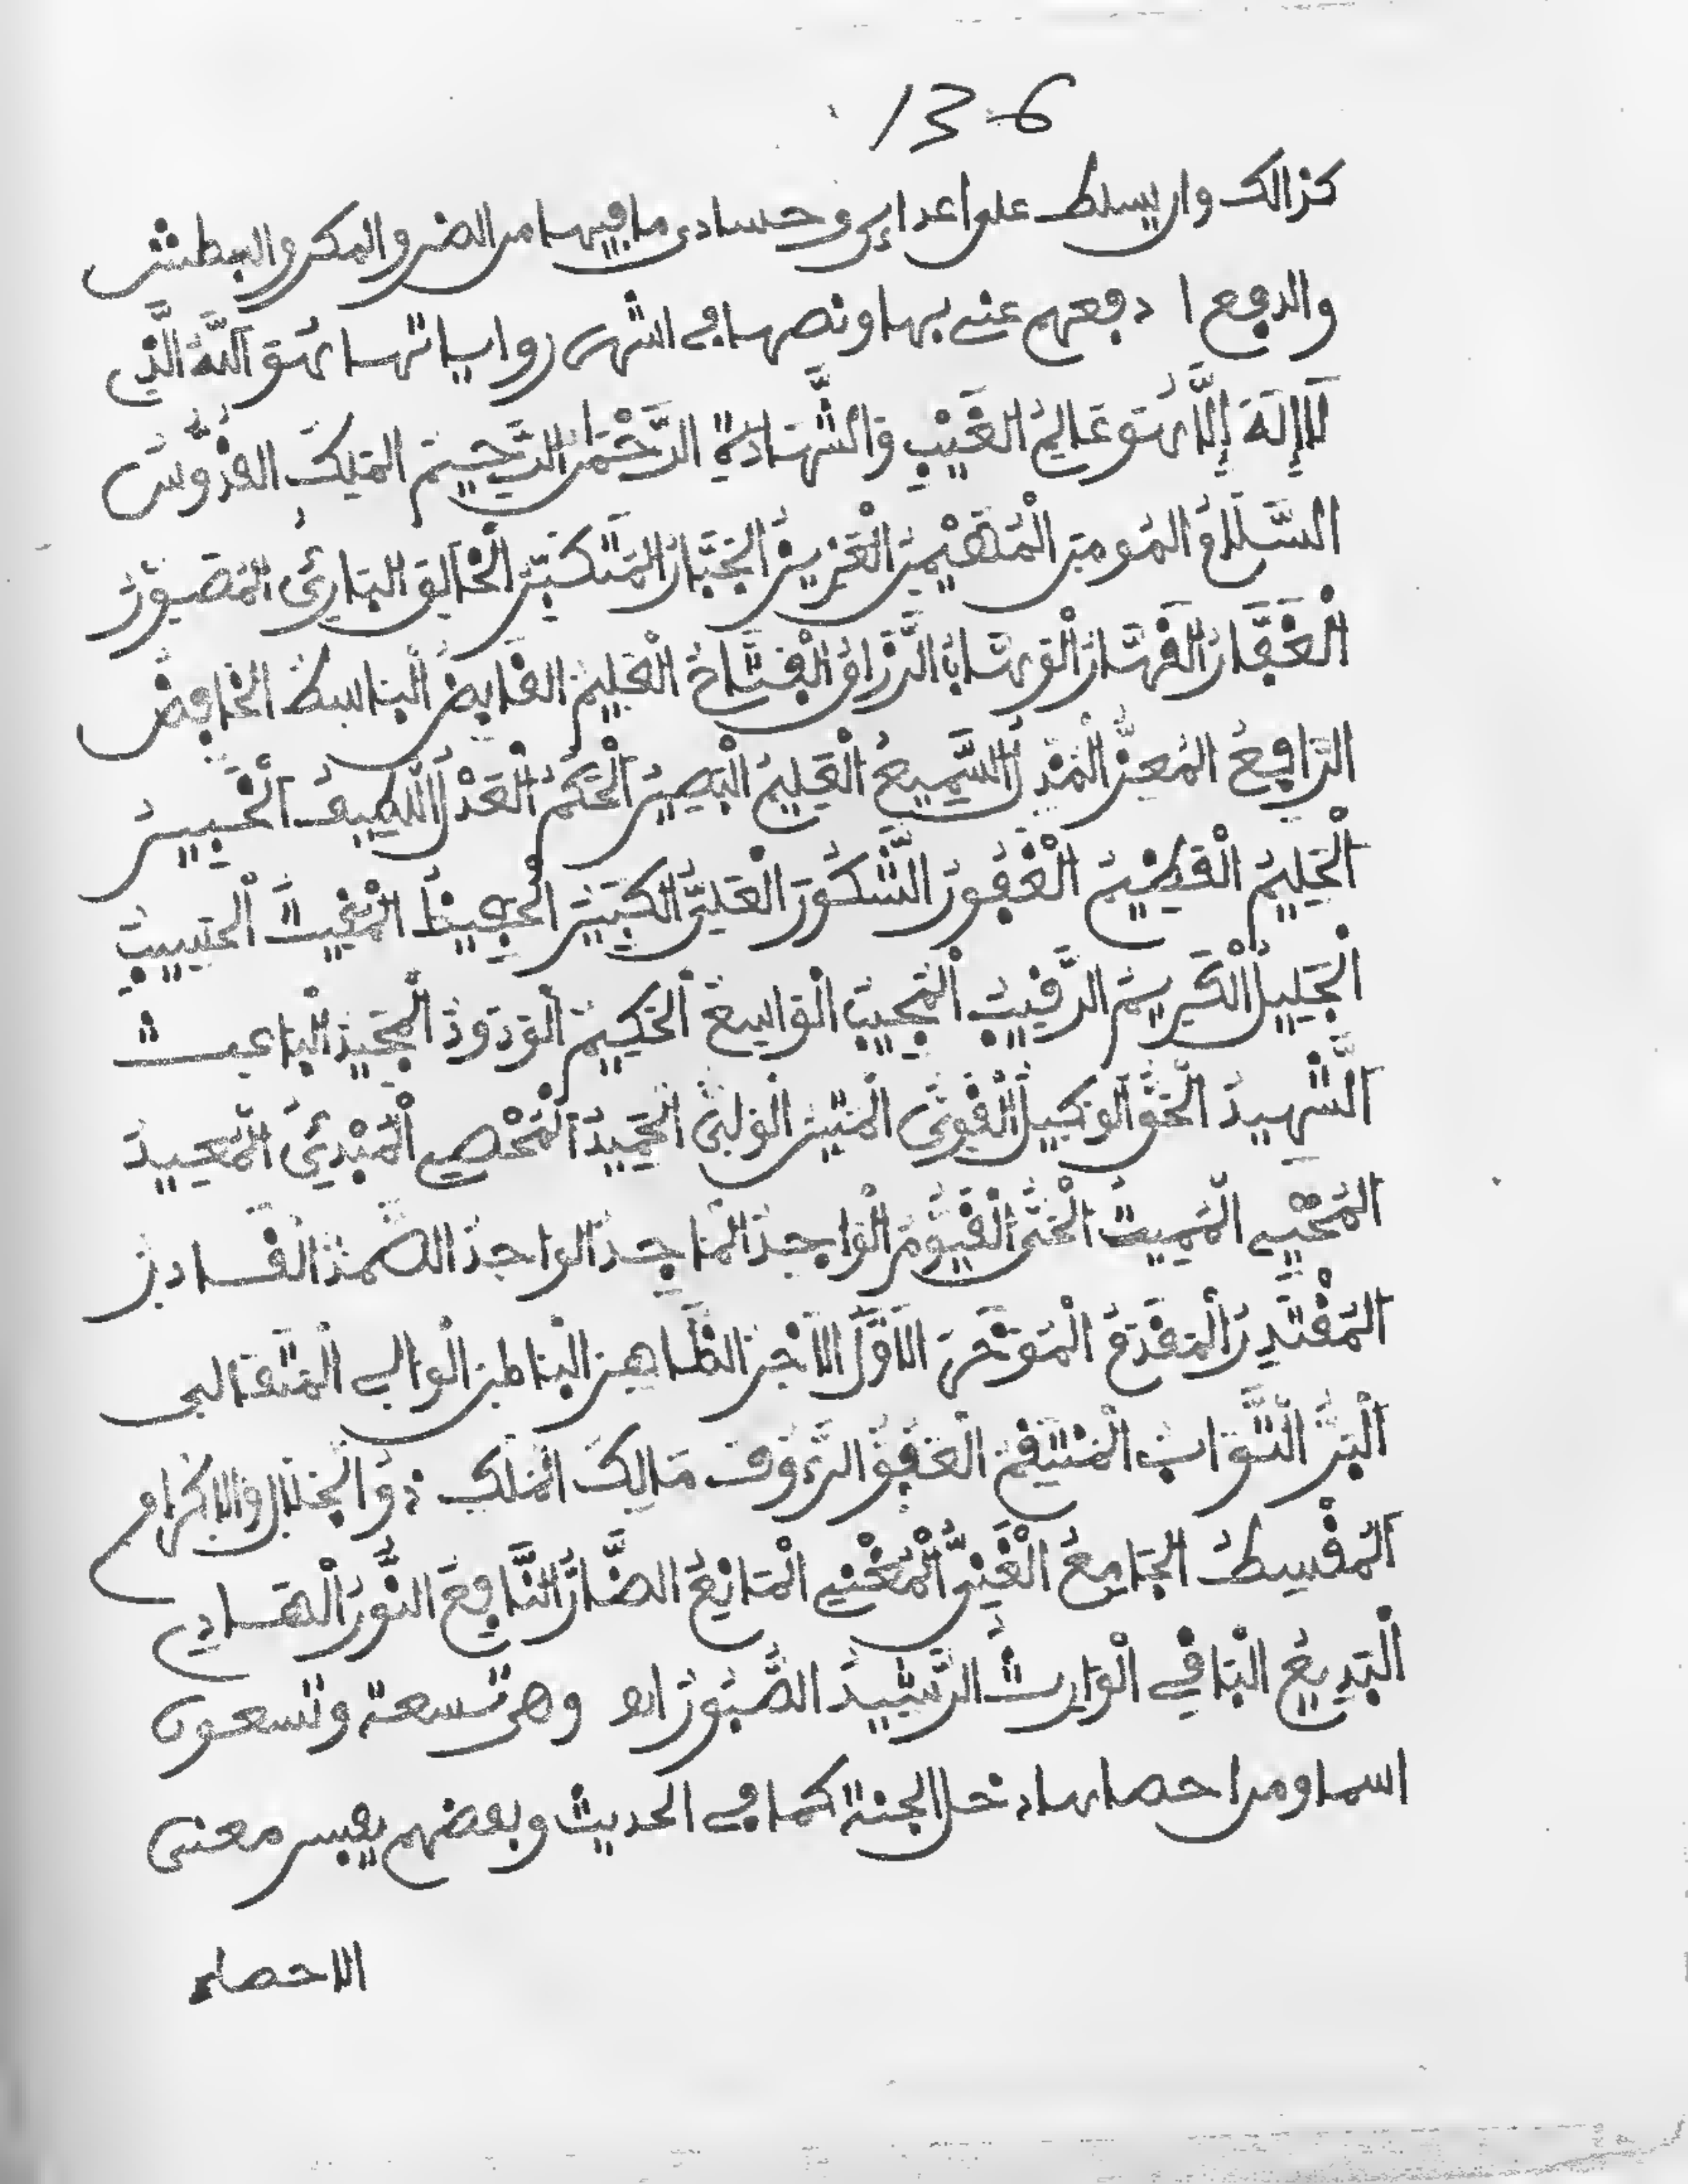 136
كذالك وان يسلط على اعداءي وحسادي ما فيها من الضر والمكر والبطش
والدفع ا دفعهم عني بها ونصها في اشهر رواياتها هُوَ اللَّهُ الَّذِي
لَا إِلَهَ إِلَّا هُوَ عَالِمُ الْغَيْبِ وَالشَّهَادَةِ الرَّحْمَنُ الرَّحِيمُ الْمَلِكُ الْقُدُّوسُ
السَّلَامُ الْمُومِنُ الْمُهَيْمِنُ الْعَزِيزُ الْجَبَّارُ الْمُتَكَبِّرُ الْخَالِقُ الْبَارِئُ الْمُصَوِّرُ
الْغَفَّارُ الْقَهَّارُ الْوَهَّابُ الرَّزَّاقُ الْفَتَّاحُ الْعَلِيمُ الْقَابِضُ الْبَاسِطُ الْخَافِضُ
الرَّافِعُ الْمُعِزُّ الْمُذِلُّ السَّمِيعُ الْعَلِيمُ الْبَصِيرُ الْحَكَمُ الْعَدْلُ اللَّطِيفُ الْخَبِيرُ
الْحَلِيمُ الْعَظِيمُ الْغَفُورُ الشَّكُورُ الْعَلِيُّ الْكَبِيرُ الْحَفِيظُ الْمُغِيثُ الْحَسِيبُ
الْجَلِيلُ الْكَرِيمُ الرَّقِيبُ الْمُجِيبُ الْوَاسِعُ الْحَكِيمُ الْوَدُودُ الْمَجِيدُ الْبَاعِثُ
الشَّهِيدُ الْحَقُّ الْوَكِيلُ الْقَوِيُّ الْمَتِينُ الْوَلِيُّ الْحَمِيدُ الْمُحْصِي الْمُبْدِئُ الْمُعِيدُ
الْمُحْيِي الْمُمِيتُ الْحَيُّ الْقَيُّومُ الْوَاجِدُ الْمَاجِدُ الْوَاحِدُ الصَّمَدُ الْقَادِرُ
الْمُقْتَدِرُ الْمُقَدِّمُ الْمُوَخِّرُ الْأَوَّلُ الْآخِرُ الظَّاهِرُ الْبَاطِنُ الْوَالِي الْمُتَعَالِي
الْبَرُّ التَّوَّابُ الْمُنْتَقِمُ الْعَفُوُّ الرَّءُوفُ مَالِكُ الْمُلْكِ ذُو الْجَلَالِ وَالْإِكْرَامِ
الْمُقْسِطُ الْجَامِعُ الْغَنِيُّ الْمُغْنِي الْمَانِعُ الضَّارُّ النَّافِعُ النُّورُ الْهَادِي
الْبَدِيعُ الْبَاقِي الْوَارِثُ الرَّشِيدُ الصَّبُورُ اه وهي تسعة وتسعون
اسما ومن احصاها دخل الجنة كما في الحديث وبعضهم يفسر معنى
الاحصاء